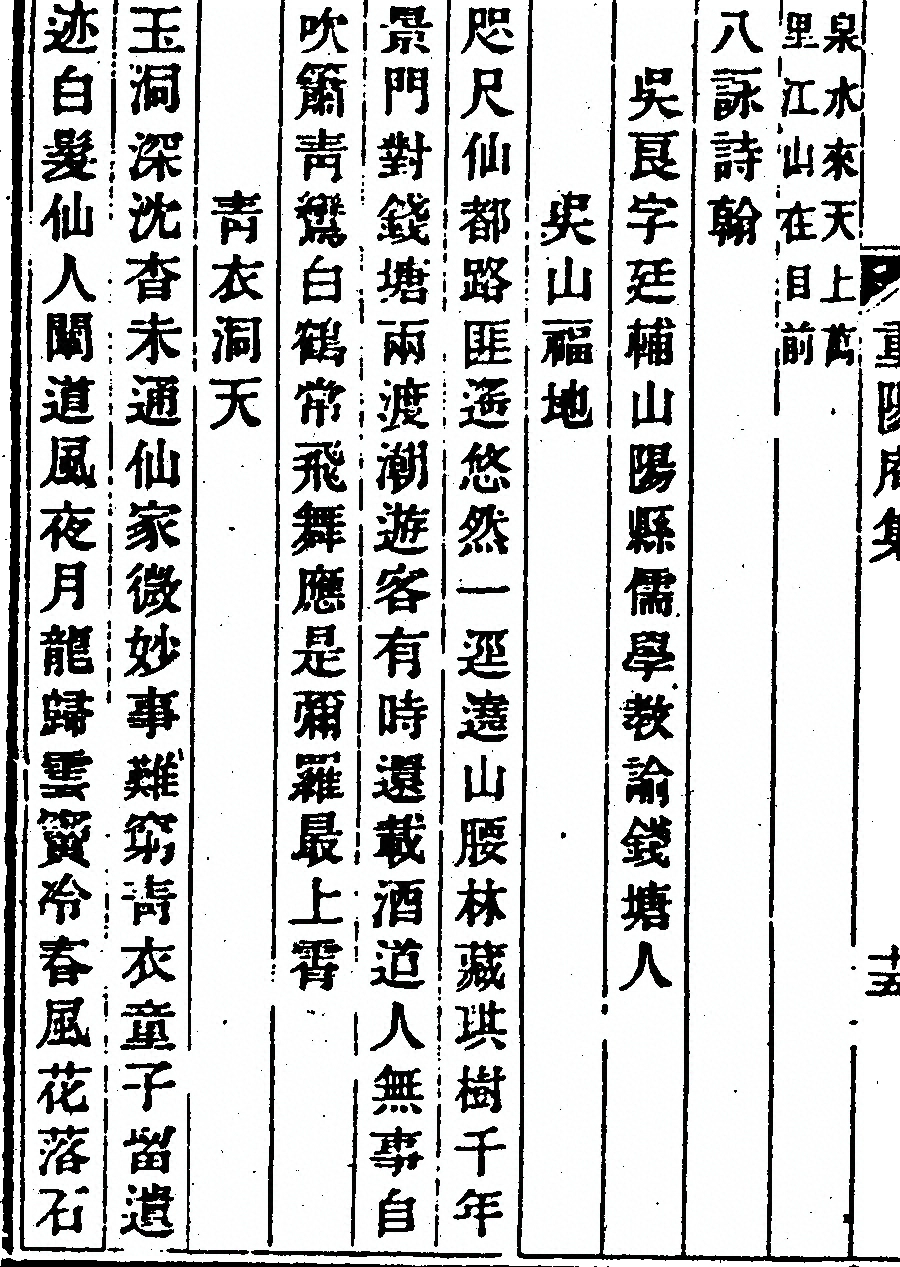 重陽庵集
十五
泉水來天上萬
里江山在目前
八詠詩翰
吳良字廷輔山陽縣儒學教諭錢塘人
吳山福地
咫尺仙都路匪遙悠然一逕遶山腰林藏琪樹千年
景門對錢塘兩渡潮遊客有時還載酒道人無事自
吹簫青鸞白鶴常飛舞應是彌羅最上霄
青衣洞天
玉洞深沈杳未通仙家微妙事難窮青衣童子留遺
迹白髮仙人闡道風夜月龍歸雲竇冷春風花落石